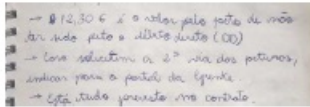 → 12,30 € é o valor pelo facto de não
ter sido feito o débito direto (DD)
→ Caso solicitem a 2ª via das faturas,
indicar para o portal da
→ Está tudo previsto no contrato.